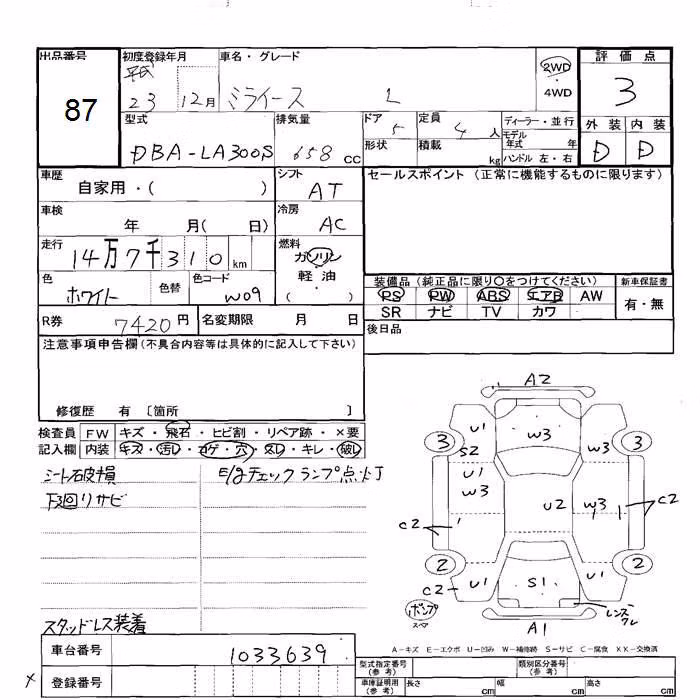 出品番号
87
初度登録年月
平成
23 12月
車名・グレード
ミライース L
2WD
・
4WD
評価点
3
外装 内装
D D
型式
DBA-LA300S
排気量
658 cc
ドア
5
形状
定員
4 人
積載
kg
ディーラー・並行
モデル
年式 年
ハンドル 左・右
車歴
自家用・( )
シフト
AT
セールスポイント (正常に機能するものに限ります)
車検
年 月( 日)
冷房
AC
走行
14万7千310 km
燃料
ガソリン
軽油
( )
色
ホワイト
色替
色コード
W09
装備品 (純正品に限り○をつけてください)
PS PW ABS エアB AW
SR ナビ TV カワ
新車保証書
有・無
R券
7420円
名変期限 月 日
後日品
注意事項申告欄(不具合内容等は具体的に記入して下さい)
修復歴 有 〔箇所 〕
検査員 FW キズ・飛石・ヒビ割・リペア跡・×要
記入欄 内装 キズ・汚れ・コゲ・穴・スレ・キレ・破レ
シート破損
E/gチェックランプ点灯
下廻りサビ
スタッドレス装着
A2
U1 W3
3 S2 W3 3
U1
W3 U2 W3
C2 C2
2 2
C2 U1 S1 U1
ポンプ
スペア
レンズ
ワレ
A1
A-キズ E-エクボ U-凹み W-補修跡 S-サビ C-腐食 XX-交換済
車台番号
1033639
登録番号
型式指定番号
(参考)
類別区分番号
(参考)
車庫証明用
(参考)
長さ cm 幅 cm 高さ cm